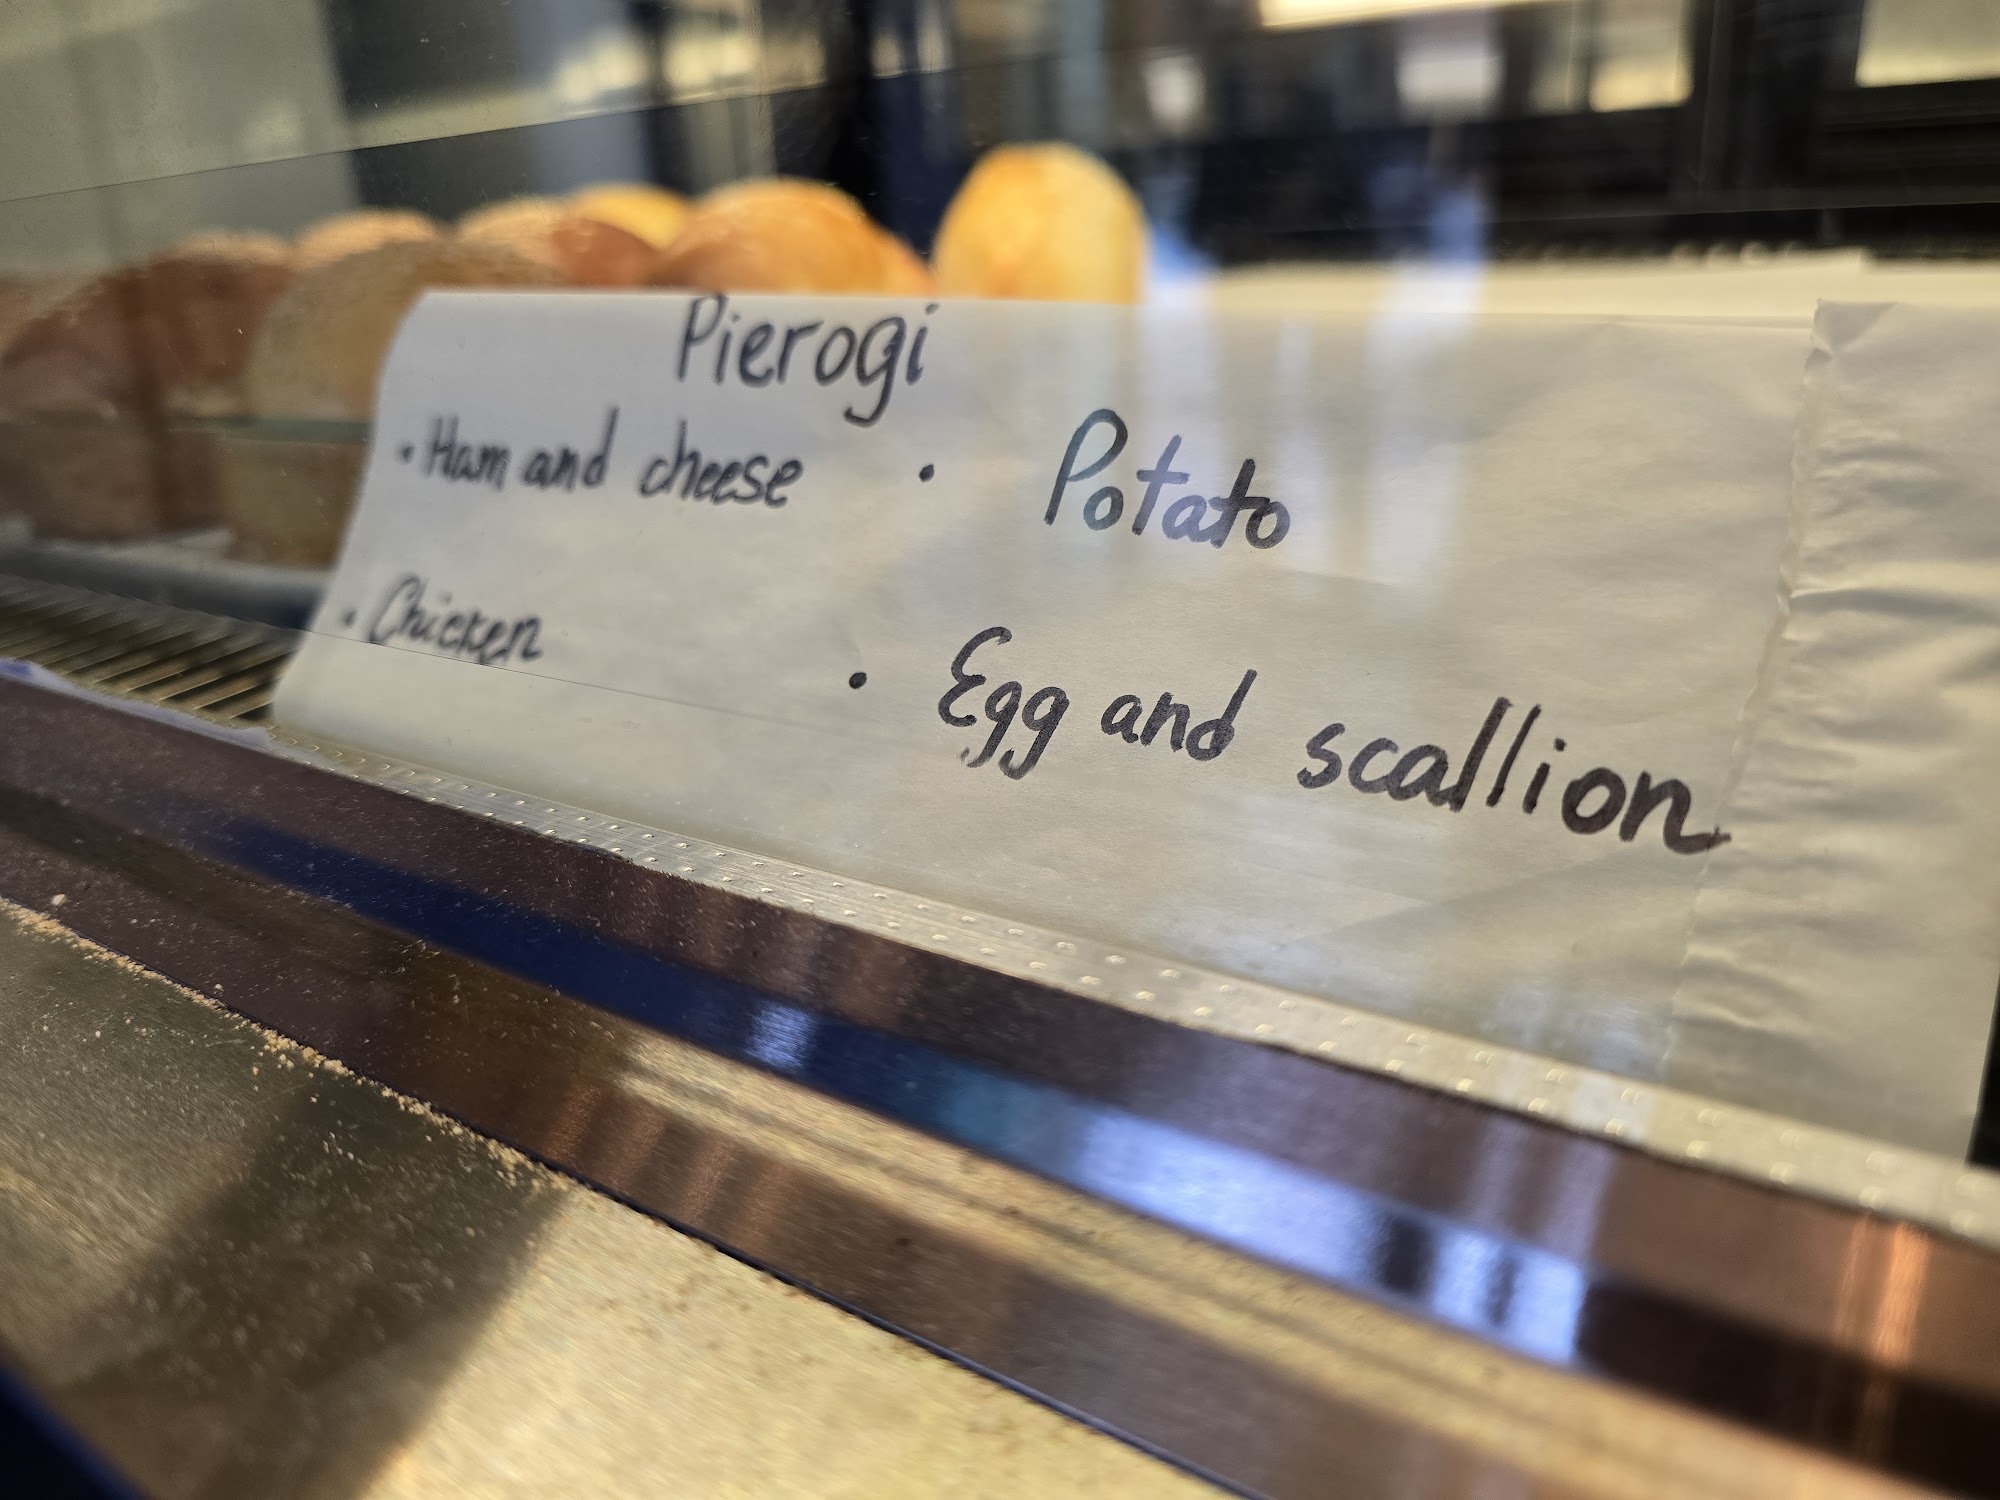 Pierogi
• Ham and cheese
• Potato
• Chicken
• Egg and scallion